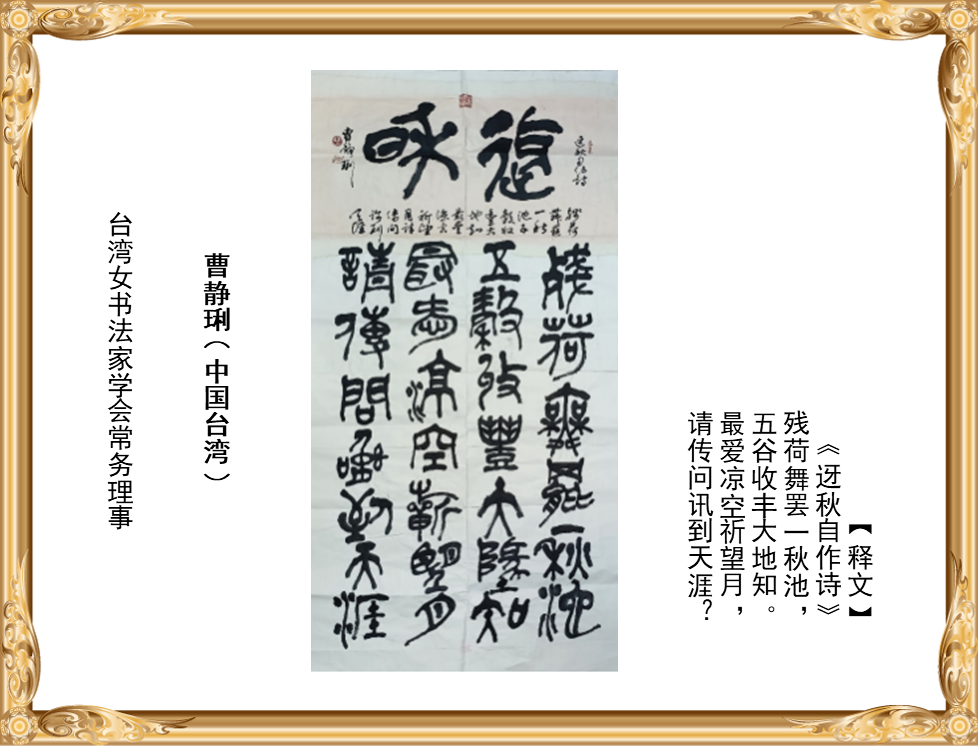 【释文】
《迓秋自作诗》
残荷舞罢一秋池，
五谷收丰大地知。
最爱凉空祈望月，
请传问讯到天涯？
迓秋自作诗
残荷舞罢一秋池
五穀收豐大地知
最爱凉空祈望月
請傳問訊到天涯
曹静琍
曹静琍（中国台湾）
台湾女书法家学会常务理事